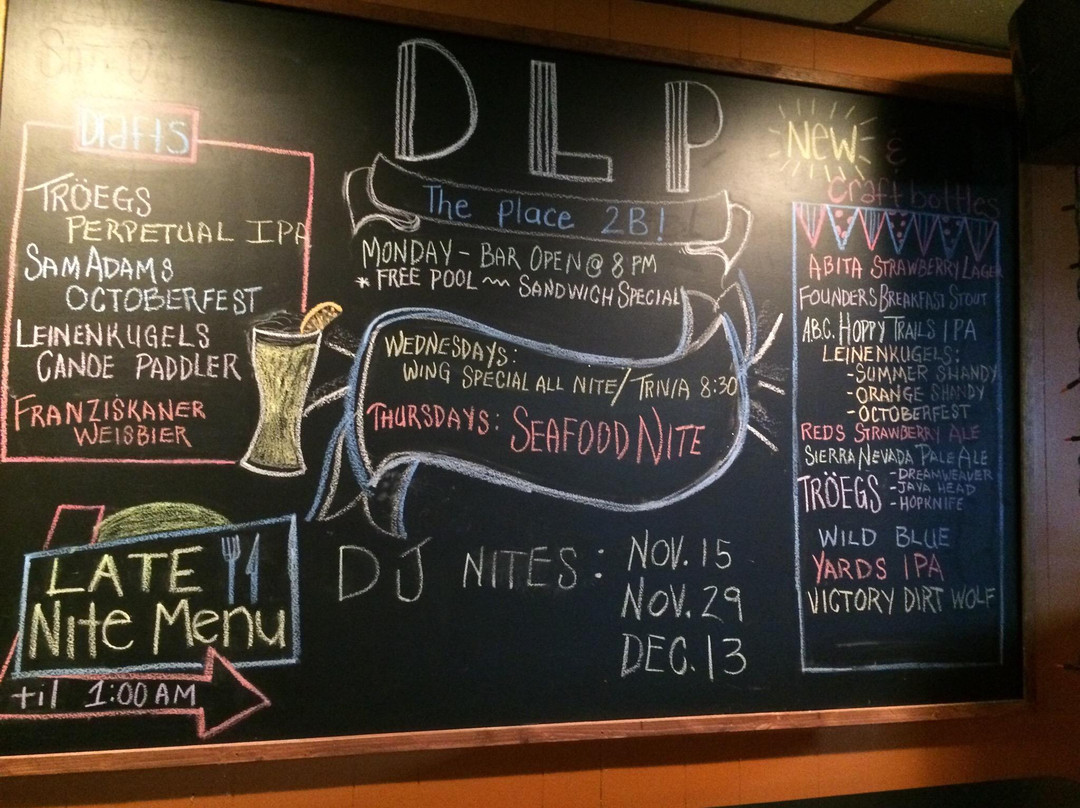 Drafts
TRÖEGS
PERPETUAL IPA
SAM ADAMS
OCTOBERFEST
LEINENKUGELS
CANOE PADDLER
FRANZISKANER
WEISBIER
LATE
Nite Menu
til 1:00 AM
DLP
The place 2B!
MONDAY - BAR OPEN @ 8 PM
* FREE POOL ~ SANDWICH SPECIAL
WEDNESDAYS:
WING SPECIAL ALL NITE/ TRIVIA 8:30
THURSDAYS: SEAFOOD NITE
DJ NITES: NOV. 15
NOV. 29
DEC. 13
NEW &
craft bottles
ABITA STRAWBERRY LAGER
FOUNDERS BREAKFAST STOUT
A.B.C. HOPPY TRAILS IPA
LEINENKUGELS:
-SUMMER SHANDY
-ORANGE SHANDY
-OCTOBERFEST
REDS STRAWBERRY ALE
SIERRA NEVADA PALE ALE
TRÖEGS -DREAMWEAVER
-JAVA HEAD
-HOPKNIFE
WILD BLUE
YARDS IPA
VICTORY DIRT WOLF